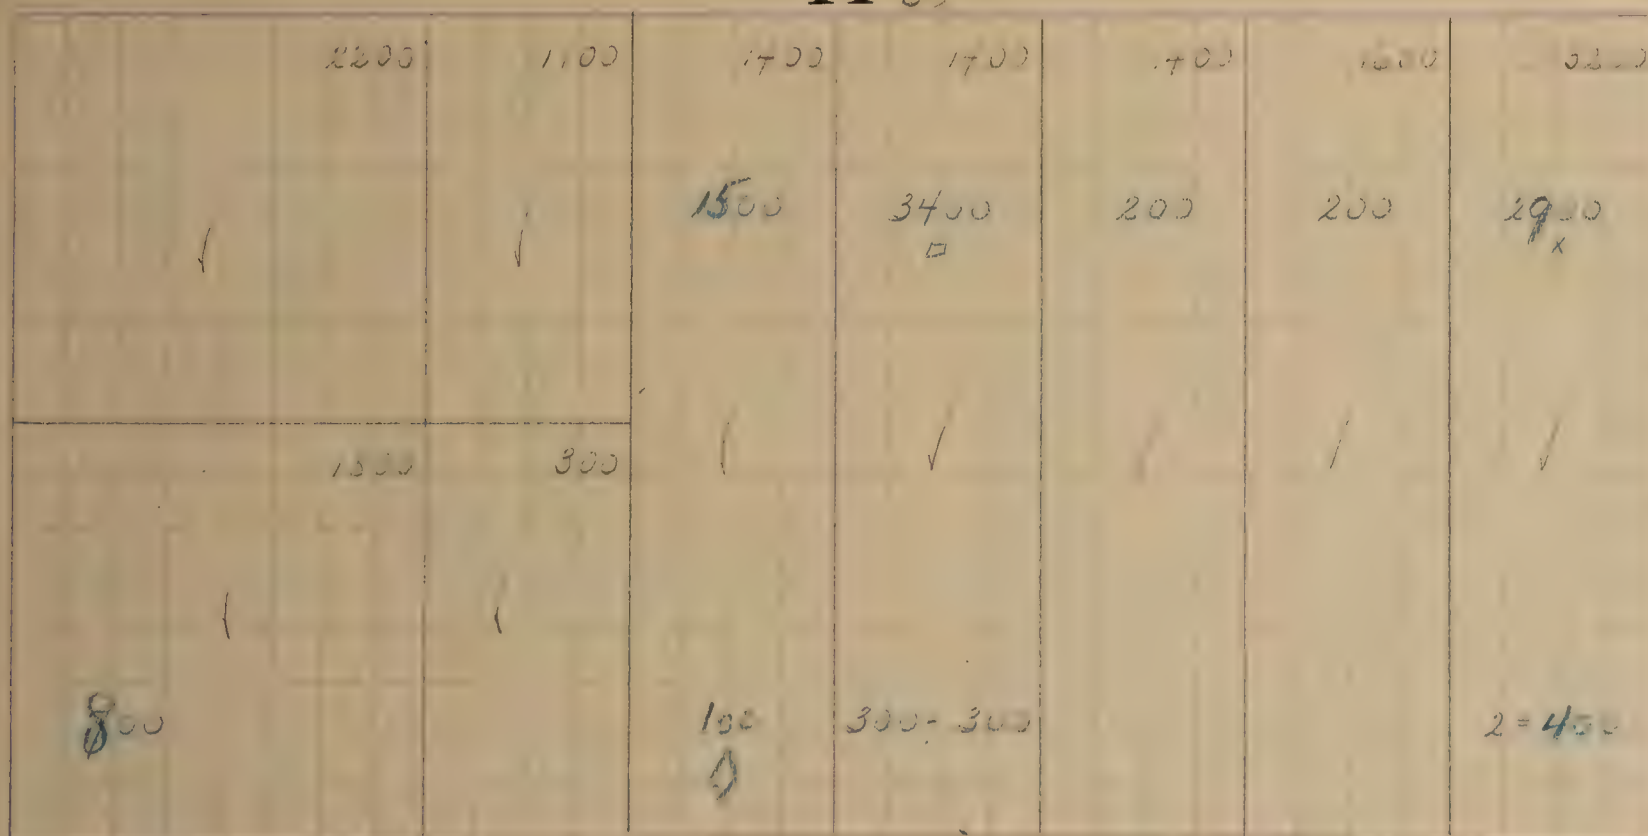 2200 1100 1400 1400 1400
1500 3400 200 200 2900
x
300
800 100 300 - 300 2 = 400